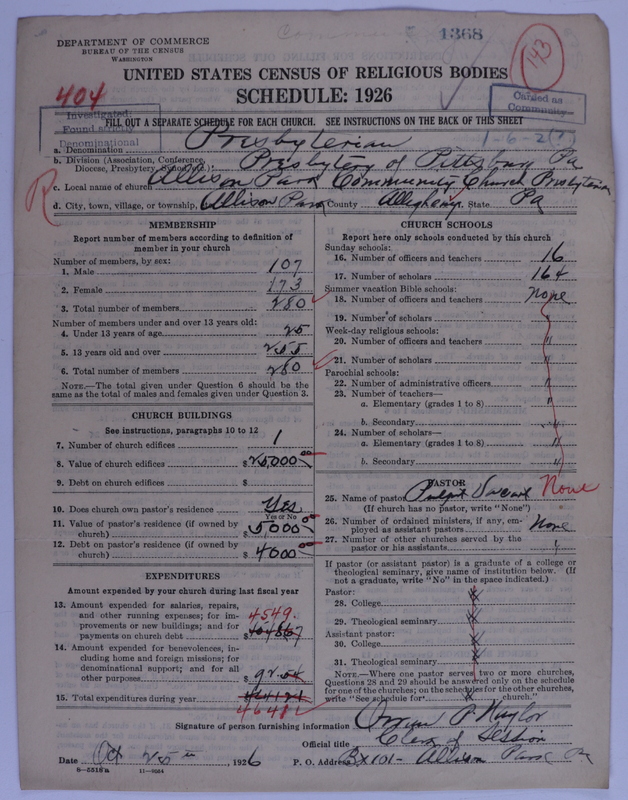 1368
143
DEPARTMENT OF COMMERCE
BUREAU OF THE CENSUS
WASHINGTON
UNITED STATES CENSUS OF RELIGIOUS BODIES
SCHEDULE: 1926
404
Investigated
Found strictly
Denominational
Carded as
Community
FILL OUT A SEPARATE SCHEDULE FOR EACH CHURCH. SEE INSTRUCTIONS ON THE BACK OF THIS SHEET
a. Denomination Presbyterian
b. Division (Association, Conference, Diocese, Presbytery, Synod, etc.) Presbytery of Pittsburg Pa
c. Local name of church Allison Park Community Church Presbyterian
R
d. City, town, village, or township, Allison Park County Allegheny State Pa
MEMBERSHIP
Report number of members according to definition of
member in your church
Number of members, by sex:
1. Male 107
2. Female 173
3. Total number of members 280
Number of members under and over 13 years old:
4. Under 13 years of age 25
5. 13 years old and over 255
6. Total number of members 280
NOTE.—The total given under Question 6 should be the
same as the total of males and females given under Question 3.
CHURCH BUILDINGS
See instructions, paragraphs 10 to 12
7. Number of church edifices 1
8. Value of church edifices $ 20,000 00
9. Debt on church edifices $
10. Does church own pastor's residence Yes
Yes or No
11. Value of pastor's residence (if owned by
church) $ 5000 00
12. Debt on pastor's residence (if owned by
church) $ 4000 00
EXPENDITURES
Amount expended by your church during last fiscal year
13. Amount expended for salaries, repairs,
and other running expenses; for im-
provements or new buildings; and for
payments on church debt $ 4549
14. Amount expended for benevolences, in-
cluding home and foreign missions; for
denominational support; and for all
other purposes $ 92.54
15. Total expenditures during year
4641
CHURCH SCHOOLS
Report here only schools conducted by this church
Sunday schools:
16. Number of officers and teachers 16
17. Number of scholars 164
Summer vacation Bible schools:
18. Number of officers and teachers None
19. Number of scholars "
Week-day religious schools:
20. Number of officers and teachers "
21. Number of scholars "
Parochial schools:
22. Number of administrative officers "
23. Number of teachers—
a. Elementary (grades 1 to 8) "
b. Secondary "
24. Number of scholars—
a. Elementary (grades 1 to 8) "
b. Secondary "
PASTOR
25. Name of pastor Pulpit Vacant None
(If church has no pastor, write "None")
26. Number of ordained ministers, if any, em-
ployed as assistant pastors None
27. Number of other churches served by the
pastor or his assistants "
If pastor (or assistant pastor) is a graduate of a college or
theological seminary, give name of institution below. (If
not a graduate, write "No" in the space indicated.)
Pastor:
28. College x
29. Theological seminary x
Assistant pastor:
30. College x
31. Theological seminary x
NOTE.—Where one pastor serves two or more churches,
Questions 28 and 29 should be answered only on the schedule
for one of the churches; on the schedules for the other churches,
write "See schedule for x church."
Signature of person furnishing information P. Naylor
Official title Clerk of Session
Date Oct 25th, 1926 P. O. Address Bx 101- Allison Park Pa
8-5518a 11-9024